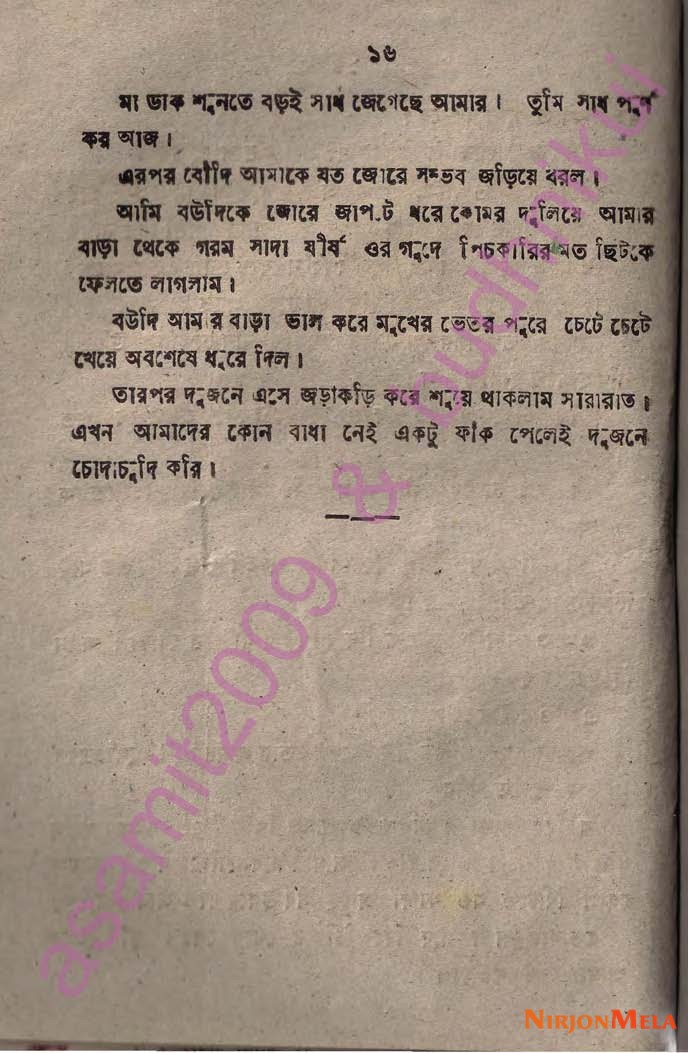 ১৬
মা ডাক শুনতে বড়ই সাধ জেগেছে আমার। তুমি সাধ পূর্ণ
কর আজ।
এরপর বৌদি আমাকে যত জোরে সম্ভব জড়িয়ে ধরল।
আমি বউদিকে জোরে জাপটে ধরে কোমর দুলিয়ে আমার
বাড়া থেকে গরম সাদা বীর্য ওর গুদে পিচকারির মত ছিটকে
ফেলতে লাগলাম।
বউদি আমার বাড়া ভাল করে মুখের ভেতর পুরে চেটে চেটে
খেয়ে অবশেষে ধুয়ে দিল।
তারপর দুজনে এসে জড়াকড়ি করে শুয়ে থাকলাম সারারাত।
এখন আমাদের কোন বাধা নেই একটু ফাঁক পেলেই দুজনে
চোদাচুদি করি।
asamit2009 & dudhnikui
NIRJONMELA